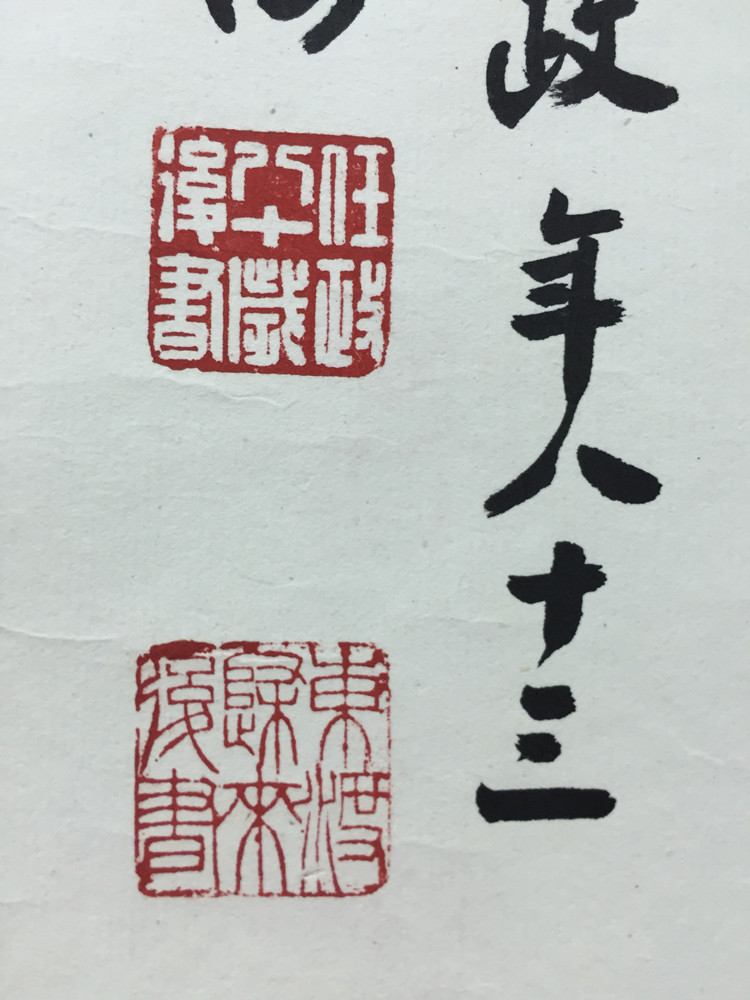 政年八十三
任政
八十歲
後書
東渡
歸來
後書